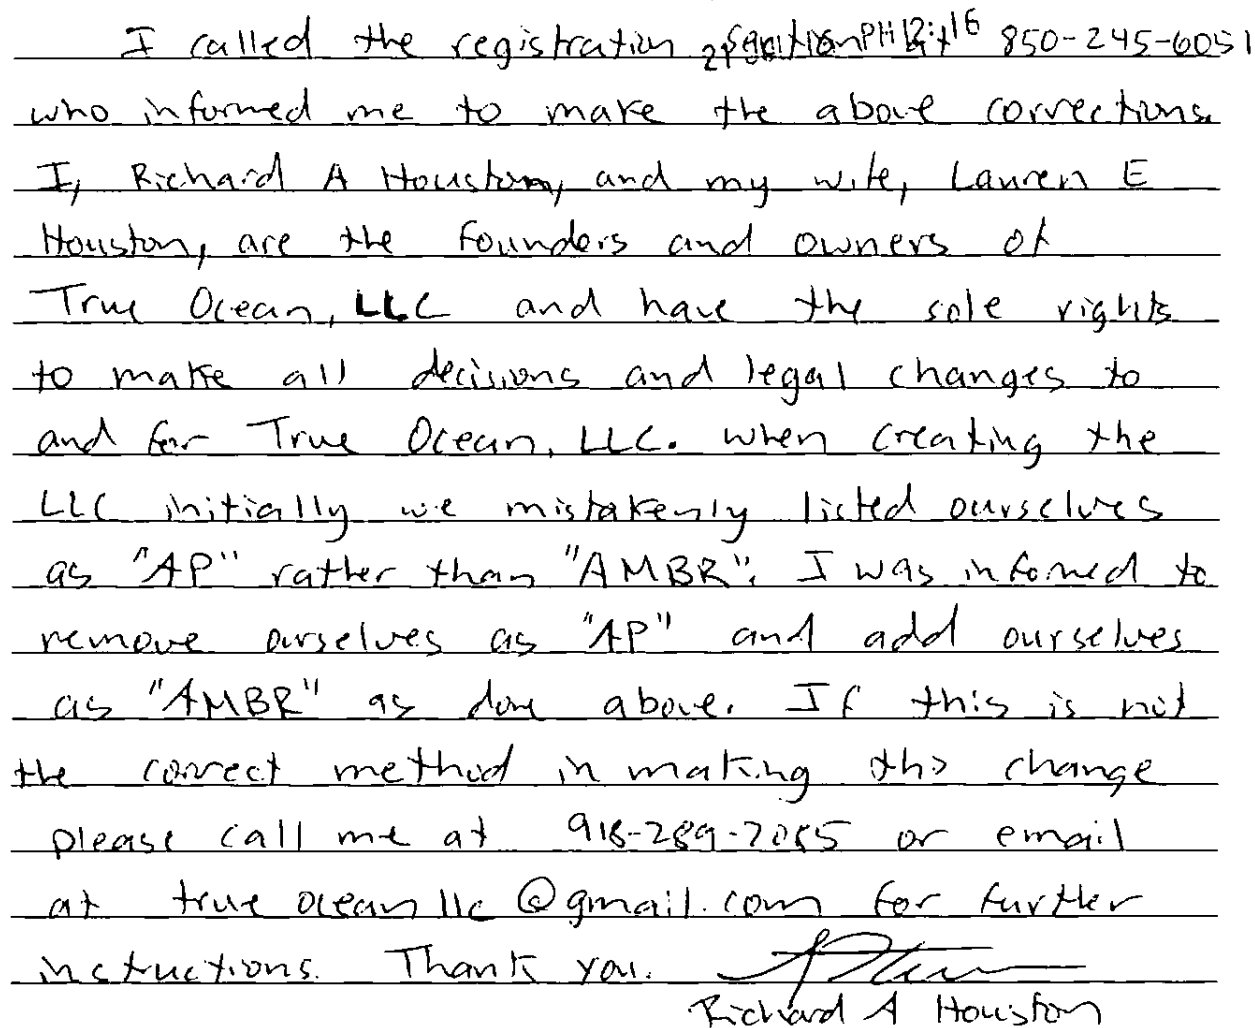 I called the registration section at 850-245-6051
who informed me to make the above corrections.
I, Richard A Houston, and my wife, Lauren E
Houston, are the founders and owners of
True Ocean, LLC and have the sole rights
to make all decisions and legal changes to
and for True Ocean, LLC. When creating the
LLC initially we mistakenly listed ourselves
as "AP" rather than "AMBR". I was informed to
remove ourselves as "AP" and add ourselves
as "AMBR" as done above. If this is not
the correct method in making this change
please call me at or email
at trueoceanllc@gmail.com for further
instructions. Thank you.
Richard A Houston